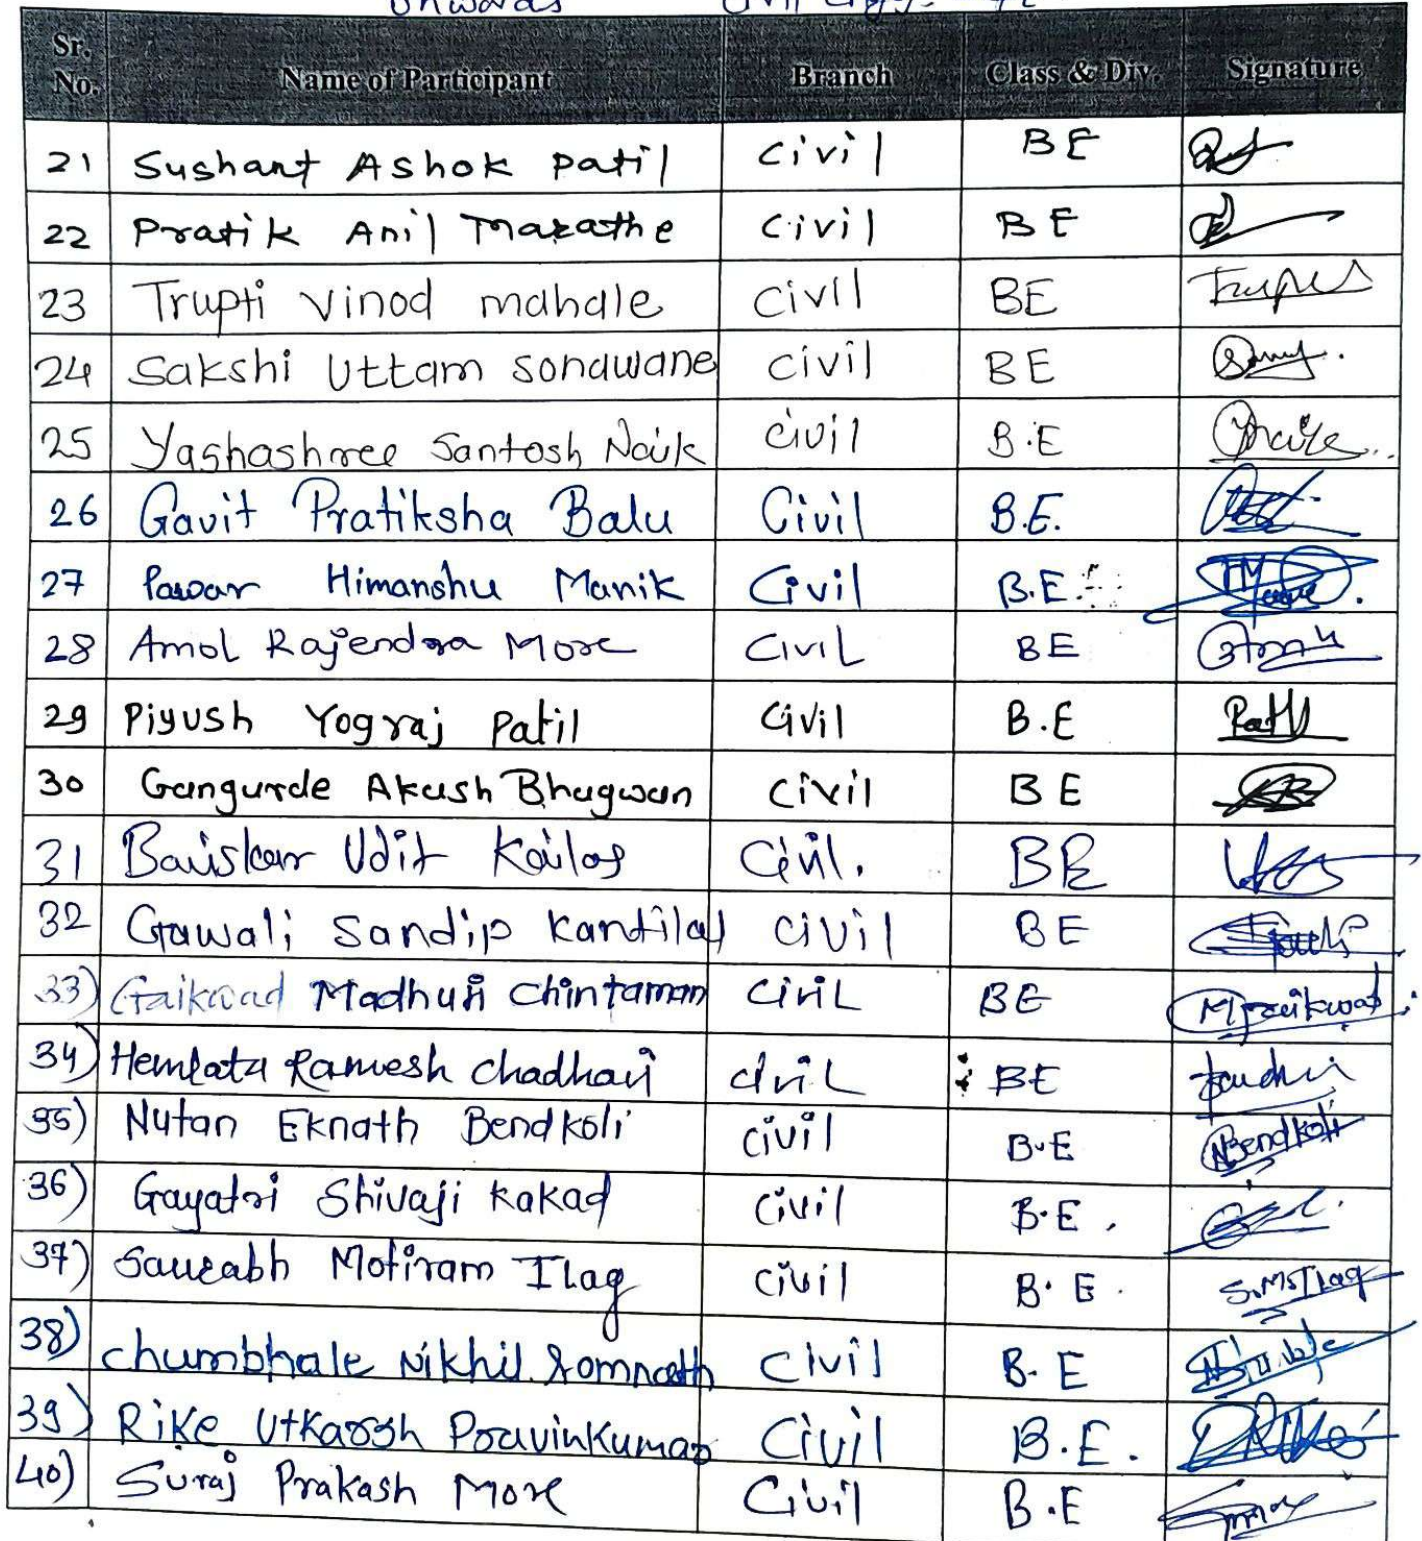 onwards
Sr. No. Name of Participant Branch Class & Div. Signature
21 Sushant Ashok Patil Civil BE
22 Pratik Anil Marathe Civil BE
23 Trupti Vinod mahale Civil BE
24 Sakshi Uttam Sonawane Civil BE
25 Yashashree Santosh Naik Civil B.E
26 Gavit Pratiksha Balu Civil B.E.
27 Pawar Himanshu Manik Civil B.E.
28 Amol Rajendra More Civil BE
29 Piyush Yograj Patil Civil B.E
30 Gangurde Akash Bhagwan Civil BE
31 Baviskar Udit Kailas Civil. BE
32 Gawali Sandip Kantilal Civil BE
33) Gaikwad Madhuri Chintaman Civil BE MGaikwad
34) Hemlata Ramesh Chadhari Civil BE
35) Nutan Eknath Bendkoli Civil B.E NBendkoli
36) Gayatri Shivaji Kakad Civil B.E.
37) Saurabh Motiram Ilag Civil B.E. S.M.Ilag
38) Chumbhale Nikhil Somnath Civil B.E
39) Rike Utkarsh Pravinkumar Civil B.E.
40) Suraj Prakash More Civil B.E